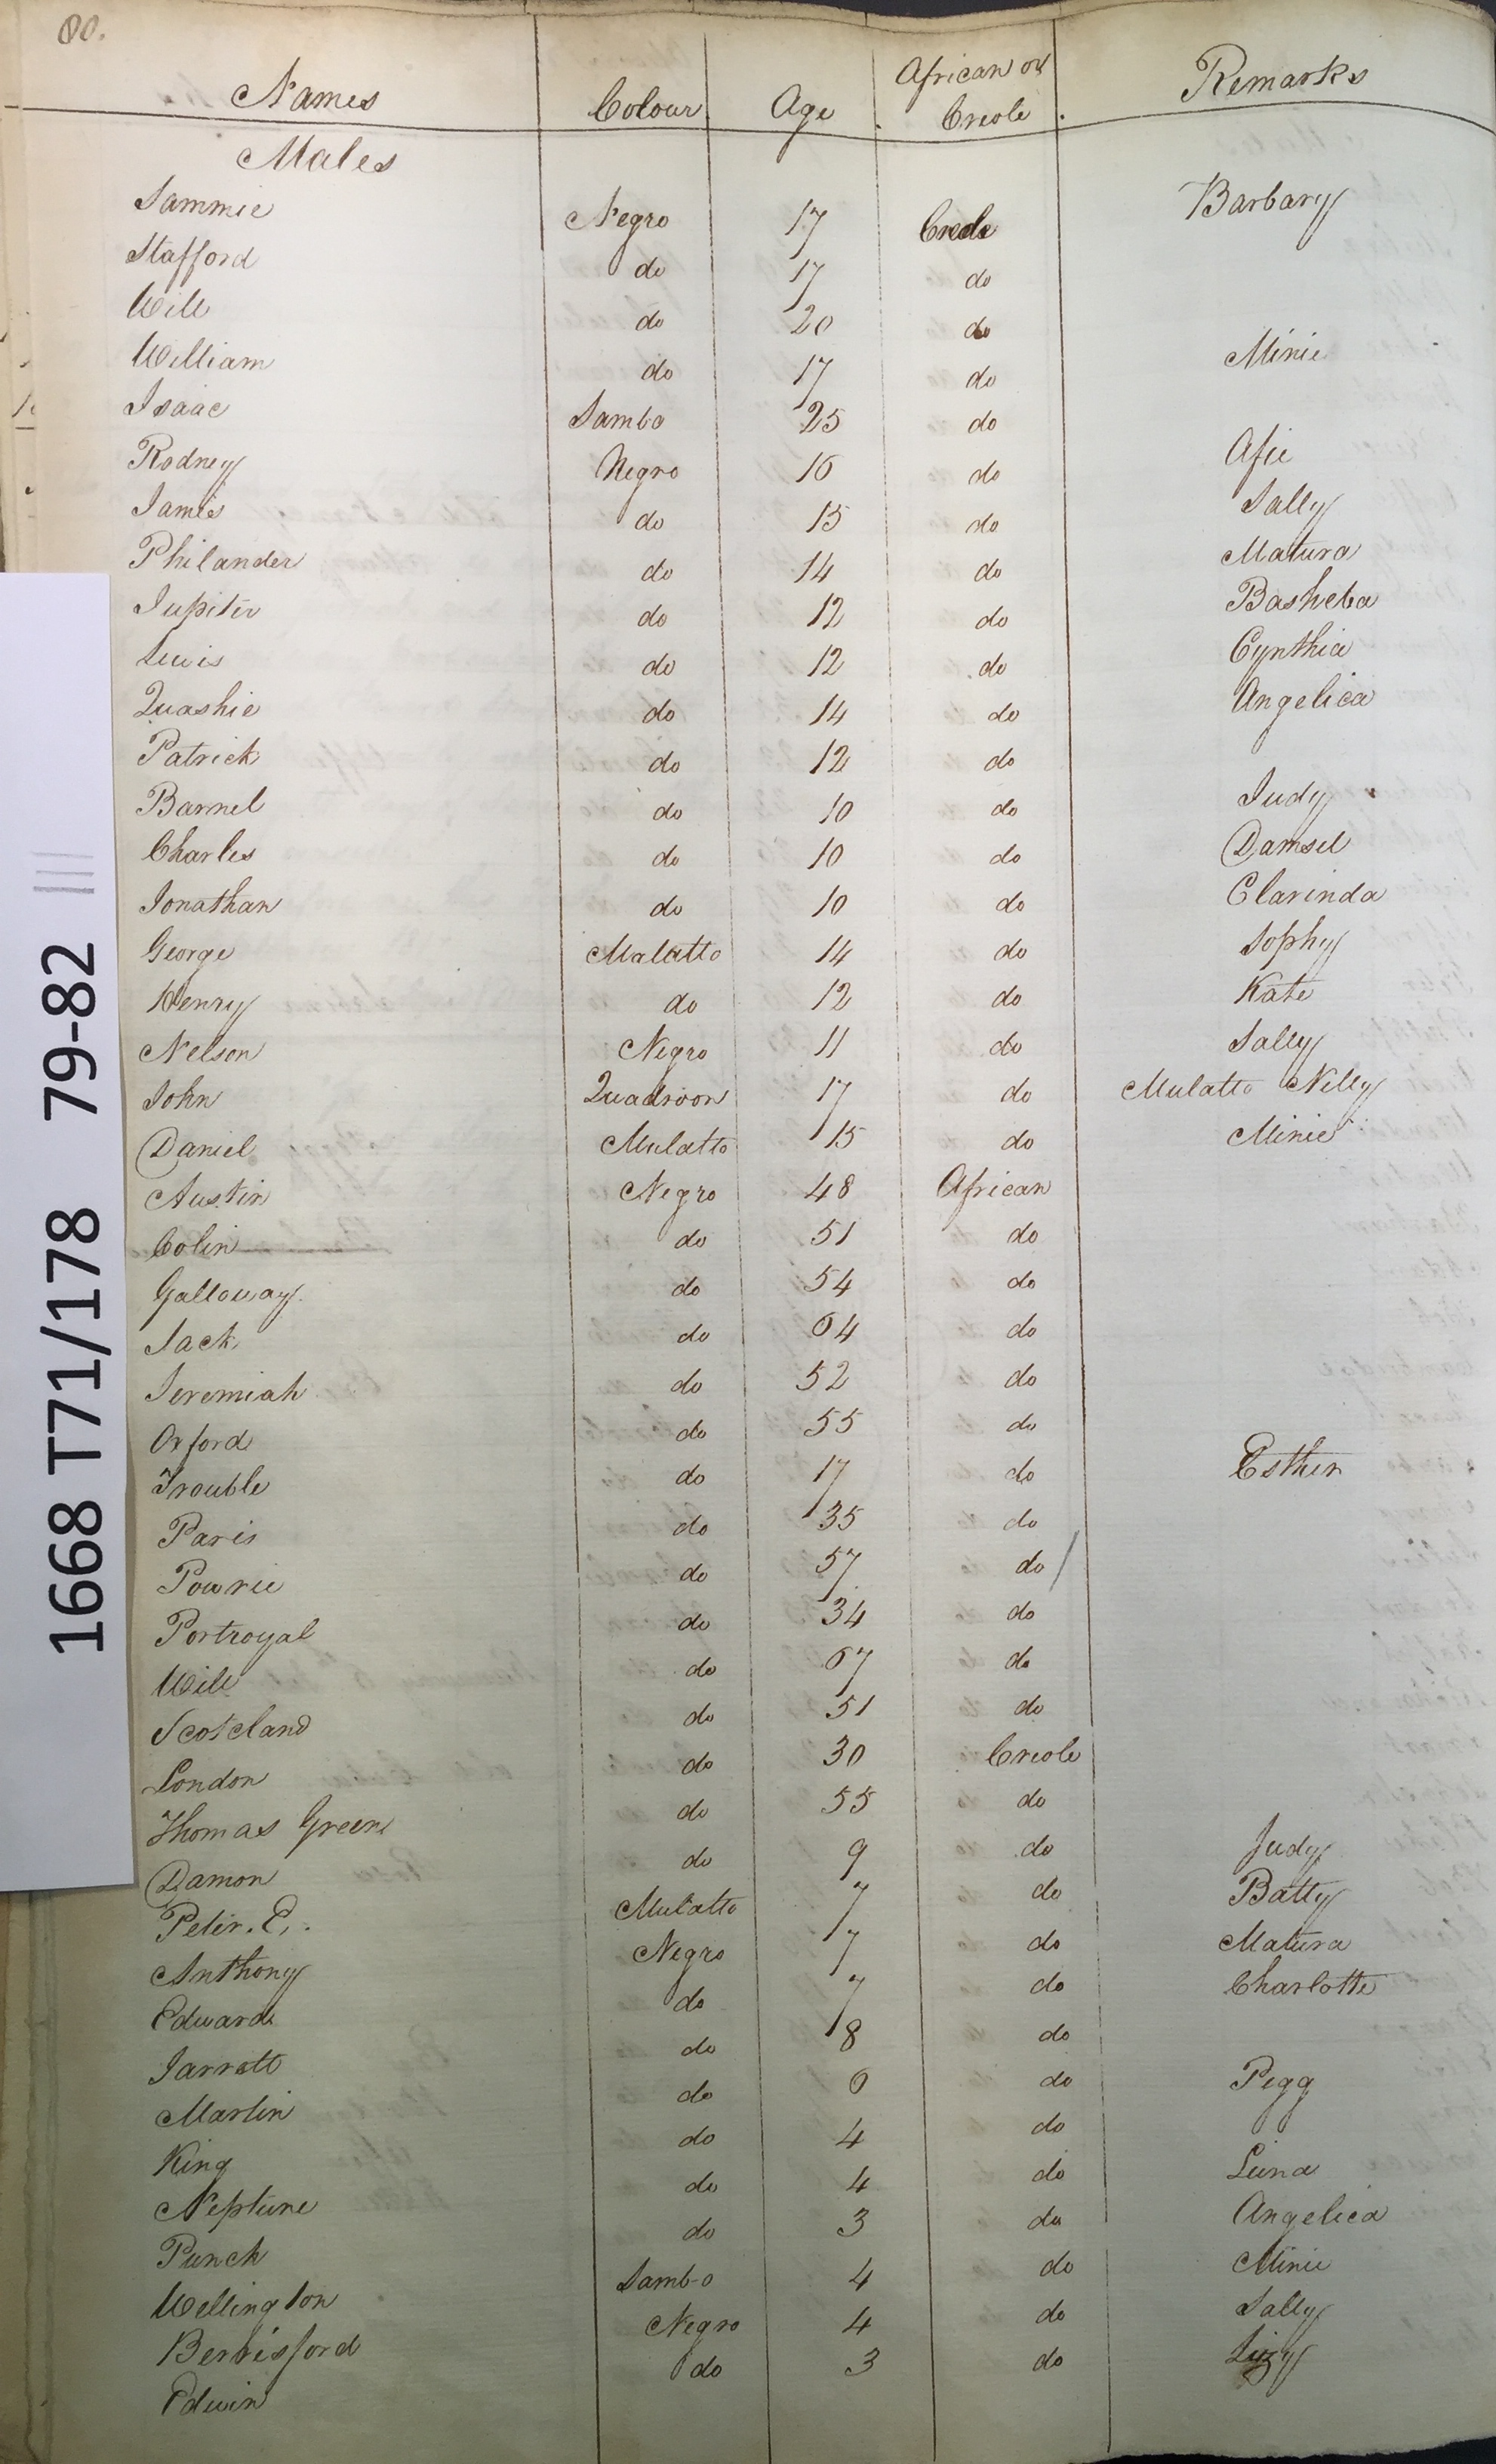 80.
Names Colour Age African or Creole Remarks
Males
Sammie Negro 17 Creole Barbary
Stafford do 17 do
Will do 20 do
William do 17 do Minie
Isaac Sambo 25 do
Rodney Negro 16 do Afie
James do 15 do Sally
Philander do 14 do Matura
Jupiter do 12 do Basheba
Lewis do 12 do Cynthia
Quashie do 14 do Angelica
Patrick do 12 do
Barnel do 10 do Judy
Charles do 10 do Damsel
Jonathan do 10 do Clarinda
George Mulatto 14 do Sophy
Henry do 12 do Kate
Nelson Negro 11 do Sally
John Quadroon 17 do Mulatto Nelly
Daniel Mulatto 15 do Minie
Austin Negro 48 African
Colin do 51 do
Galloway do 54 do
Jack do 64 do
Jeremiah do 52 do
Oxford do 55 do
Trouble do 17 do Esther
Paris do 35 do
Powrie do 57 do /
Portroyal do 34 do
Will do 67 do
Scotcland do 51 do
London do 30 Creole
Thomas Green do 55 do
Damon do 9 do Judy
Peter. E. Mulatto 7 do Batty
Anthony Negro 7 do Matura
Edward do 7 do Charlotte
Jarrott do 8 do
Martin do 6 do Pegg
King do 4 do
Neptune do 4 do Luna
Punch do 3 do Angelica
Wellington Sambo 4 do Minie
Berrisford Negro 4 do Sally
Edwin do 3 do Lizzy
1668 T71/178 79-82